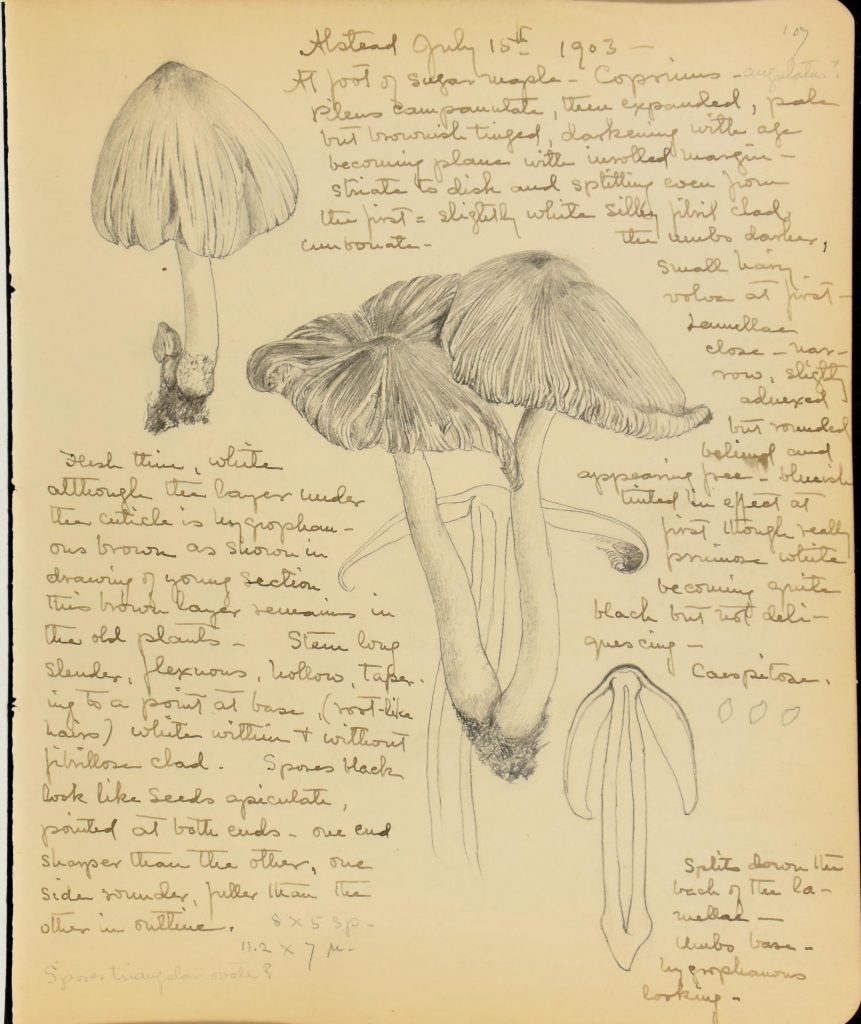 107
Alstead July 15th 1903 —
At foot of sugar maple — Coprinus — angulatus?
Pileus campanulate, then expanded, pale
but brownish tinged, darkening with age
becoming plane with inrolled margin —
striate to disk and splitting even from
the first = slightly white silky fibril clad,
umbonate — the umbo darker,
small hairy
volva at first —
Lamellae
close — nar-
row, slightly
adnexed
but rounded
behind and
appearing free — blueish
tinted in effect at
first though really
pruinose white
becoming quite
black but not deli-
quescing —
Caespitose.
Flesh thin, white
although the layer under
the cuticle is hygrophan-
ous brown as shown in
drawing of young section
this brown layer remains in
the old plants — Stem long
slender, flexuous, hollow, taper-
ing to a point at base, (root-like
hairs) white within + without
fibrillose clad. Spores black
look like seeds apiculate,
pointed at both ends — one end
sharper than the other, one
side rounder, fuller than the
other in outline. 8 x 5 sp —
11.2 x 7 µ —
Spores triangular ovate?
Splits down the
back of the la-
mellae —
Umbo base —
hygrophanous
looking —